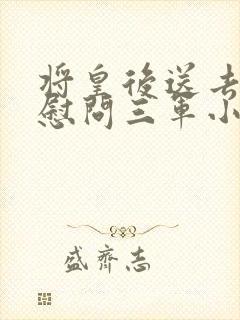 將皇後送去
慰問三軍小
盛齊志